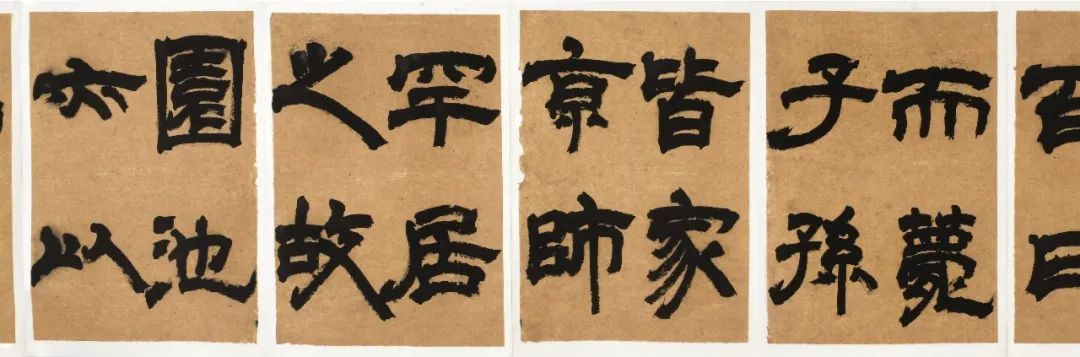 百日
而薨
子孫
皆家
亰師
罕居
之故
園池
亦以